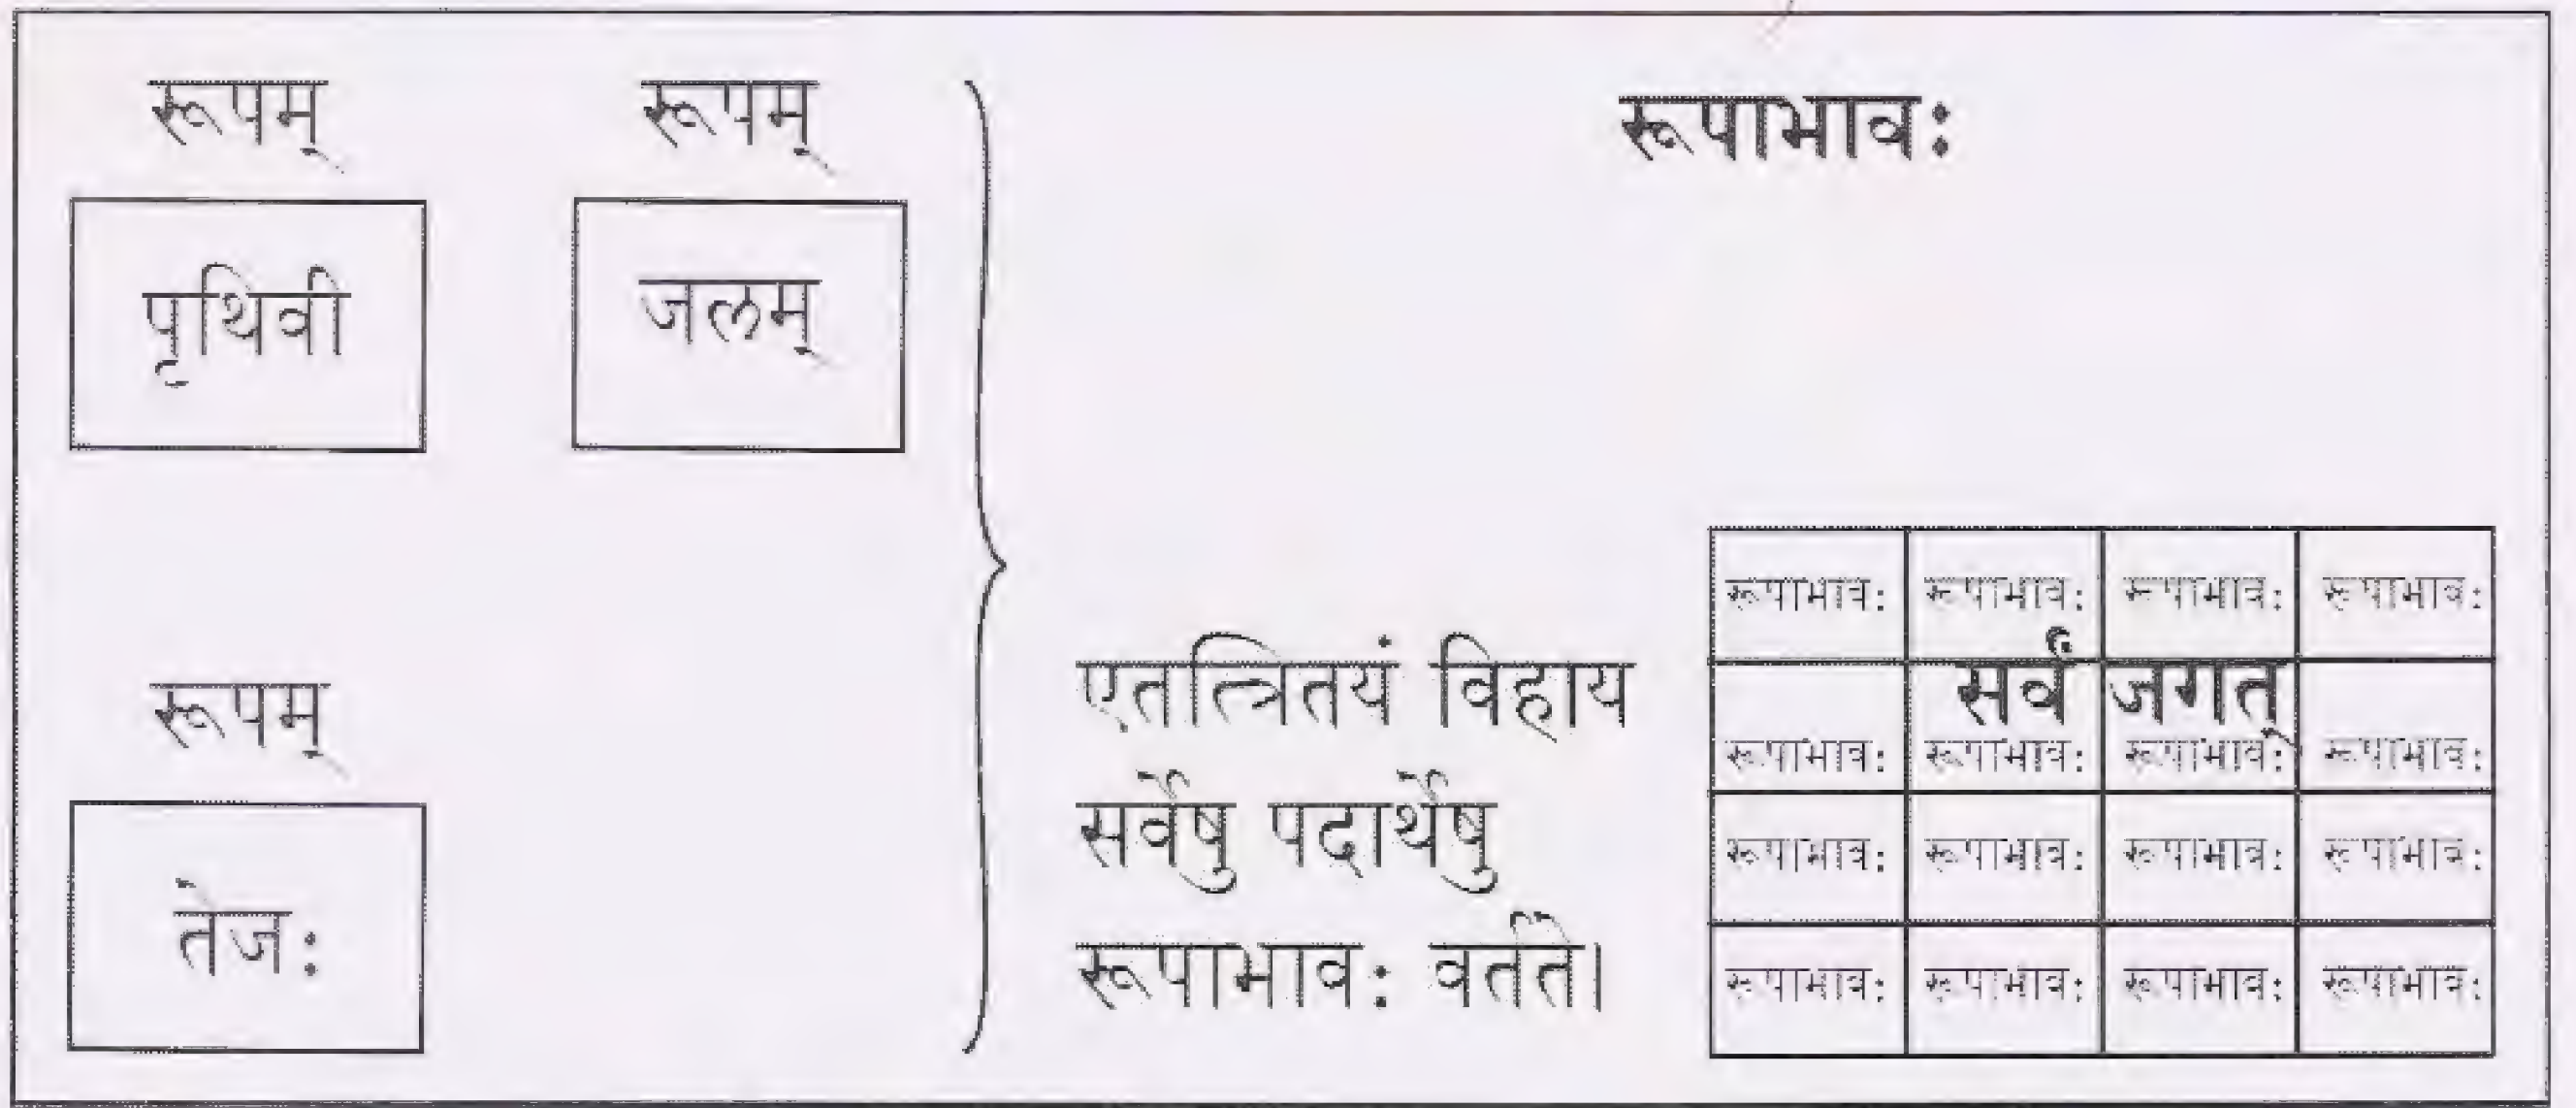 रूपम्
रूपम्
पृथिवी
जलम्
रूपम्
तेजः
रूपाभावः
एतत्त्रितयं विहाय
सर्वेषु पदार्थेषु
रूपाभावः वर्तते।
रूपाभावः रूपाभावः रूपाभावः रूपाभावः
सर्वं जगत्
रूपाभावः रूपाभावः रूपाभावः रूपाभावः
रूपाभावः रूपाभावः रूपाभावः रूपाभावः
रूपाभावः रूपाभावः रूपाभावः रूपाभावः